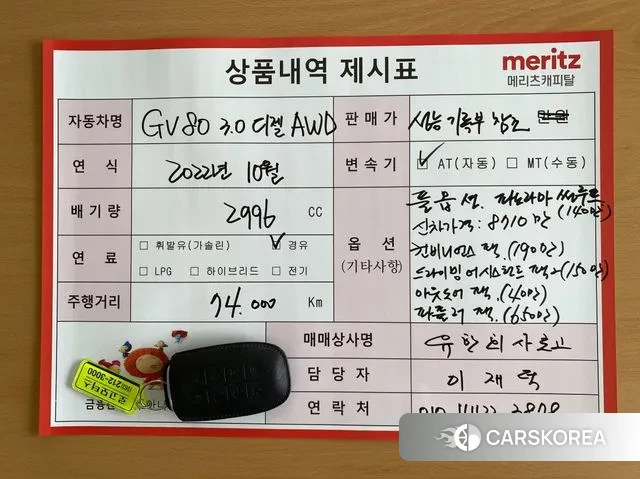 상품내역 제시표
meritz
메리츠캐피탈
자동차명 GV80 3.0 디젤 AWD
판매가 성능기록부 참조 만원
연 식 2022년 10월
변속기 ☑ AT(자동) □ MT(수동)
배기량 2996 CC
연 료 □ 휘발유(가솔린) ☑ 경유
□ LPG □ 하이브리드 □ 전기
주행거리 74.000 Km
옵 션
(기타사항)
풀옵션. 파노라마 썬루프
(140만)
신차가격: 8710만
컨비니언스 팩. (190만)
드라이빙 어시스턴트 팩2 (150만)
아웃도어 팩. (40만)
파퓰러 팩. (650만)
매매상사명
담 당 자 이재혁
연 락 처 010
212-3000
금융
CARSKOREA